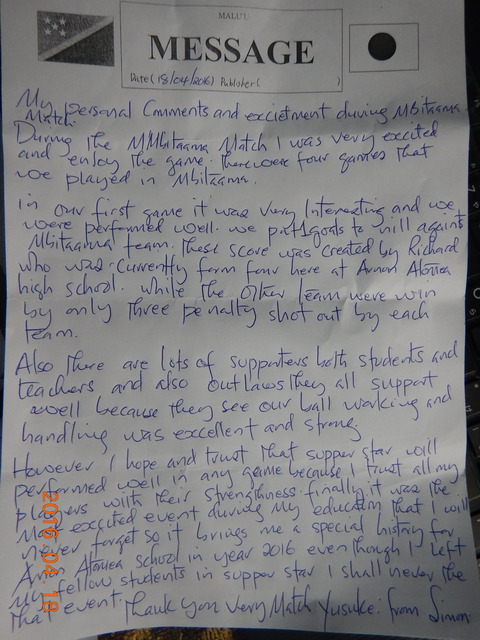 MALU'U
MESSAGE
Date (18/04/2016) Publisher (          )
My personal Comments and excietment during Mbitaama
Match.
During the MMbitaama Match I was very excited
and enjoy the game. There were four games that
we played in Mbitaama.
In our first game it was very Interesting and we
were performed well. we put 1 goals to nill against
Mbitaama team. These score was created by Richard
who was currently form four here at Arnon Atomea
high school. while the other team were win
by only three penalty shot out by each
team.
Also there are lots of supporters both students and
teachers and also out laws they all support
well because they see our ball working and
handling was excellent and strong.
However I hope and trust that supper star will
performed well in any game because I trust all my
players with their strengthness. finally it was the
Most excited event during my education that I will
never forget so it brings me a special history for
Arnon Atomea school in year 2016 even though I left
My fellow students in supper star I shall never the
that event. Thank you very Match Yusuke. from Simon
2016.04.18